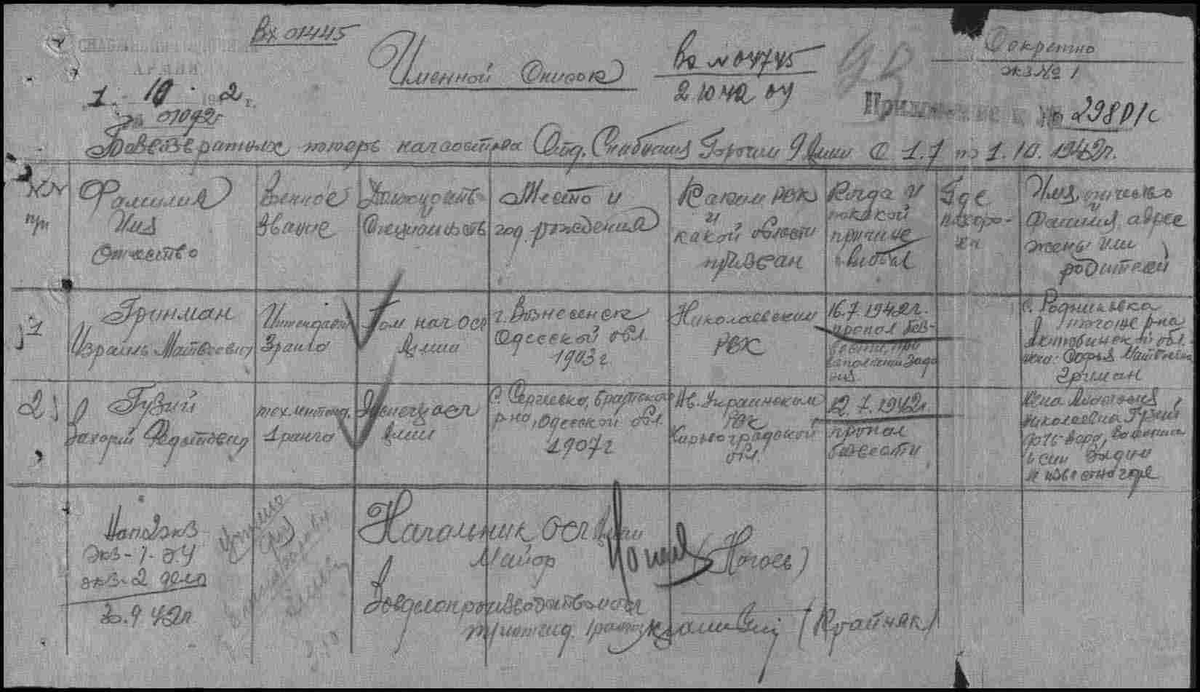 Вх 01445
СНАБЖЕНИЯ
АРМИИ
1 10 1942 г.
№ 01042
Именной Список
Вх № 04745
2 10 42 ОУ
Секретно
экз № 1
Приложение к № 2980/с
Безвозвратных потерь начсостава Отд. Снабжения Горючим 9 Армии с 1.7 по 1.10.1942г.
№№ пп
Фамилия Имя Отчество
Военное звание
Должность Специальность
Место и год рождения
Каким РВК и какой области призван
Когда и по какой причине выбыл
Где похоро-
Имя, отчество и фамилия, адрес жены или родителей
1
Гринман
Израиль Матвеевич
Интендант
3 ранга
Пом нач осг
Армии
г. Вознесенск
Одесской обл.
1903г
Николаевским
РВК
16.7.1942г.
пропал без-
вести, при
выполнении Зада
ния.
с. Родниковка
р-на
Актюбинской обл.
Софья
Гринман
2
Гузий
Захарий
тех. интенд.
1 ранга
осг
Армии
с. Сергеевка, Братского
р-на, Одесской обл.
1907г
Ив. Украинским
РВК
Кировоградской
обл.
12.7.1942г.
пропал
безвести
Жена
Николаевна Гузий
дочь
и сын
Нап 2 экз
экз-1-ОУ
экз-2 дело
30.9.42г.
Начальник осг Армии
Майор
(Ногаев)
Зав делопроизводством осг
интенд. 1 ранга
(Крайняк)